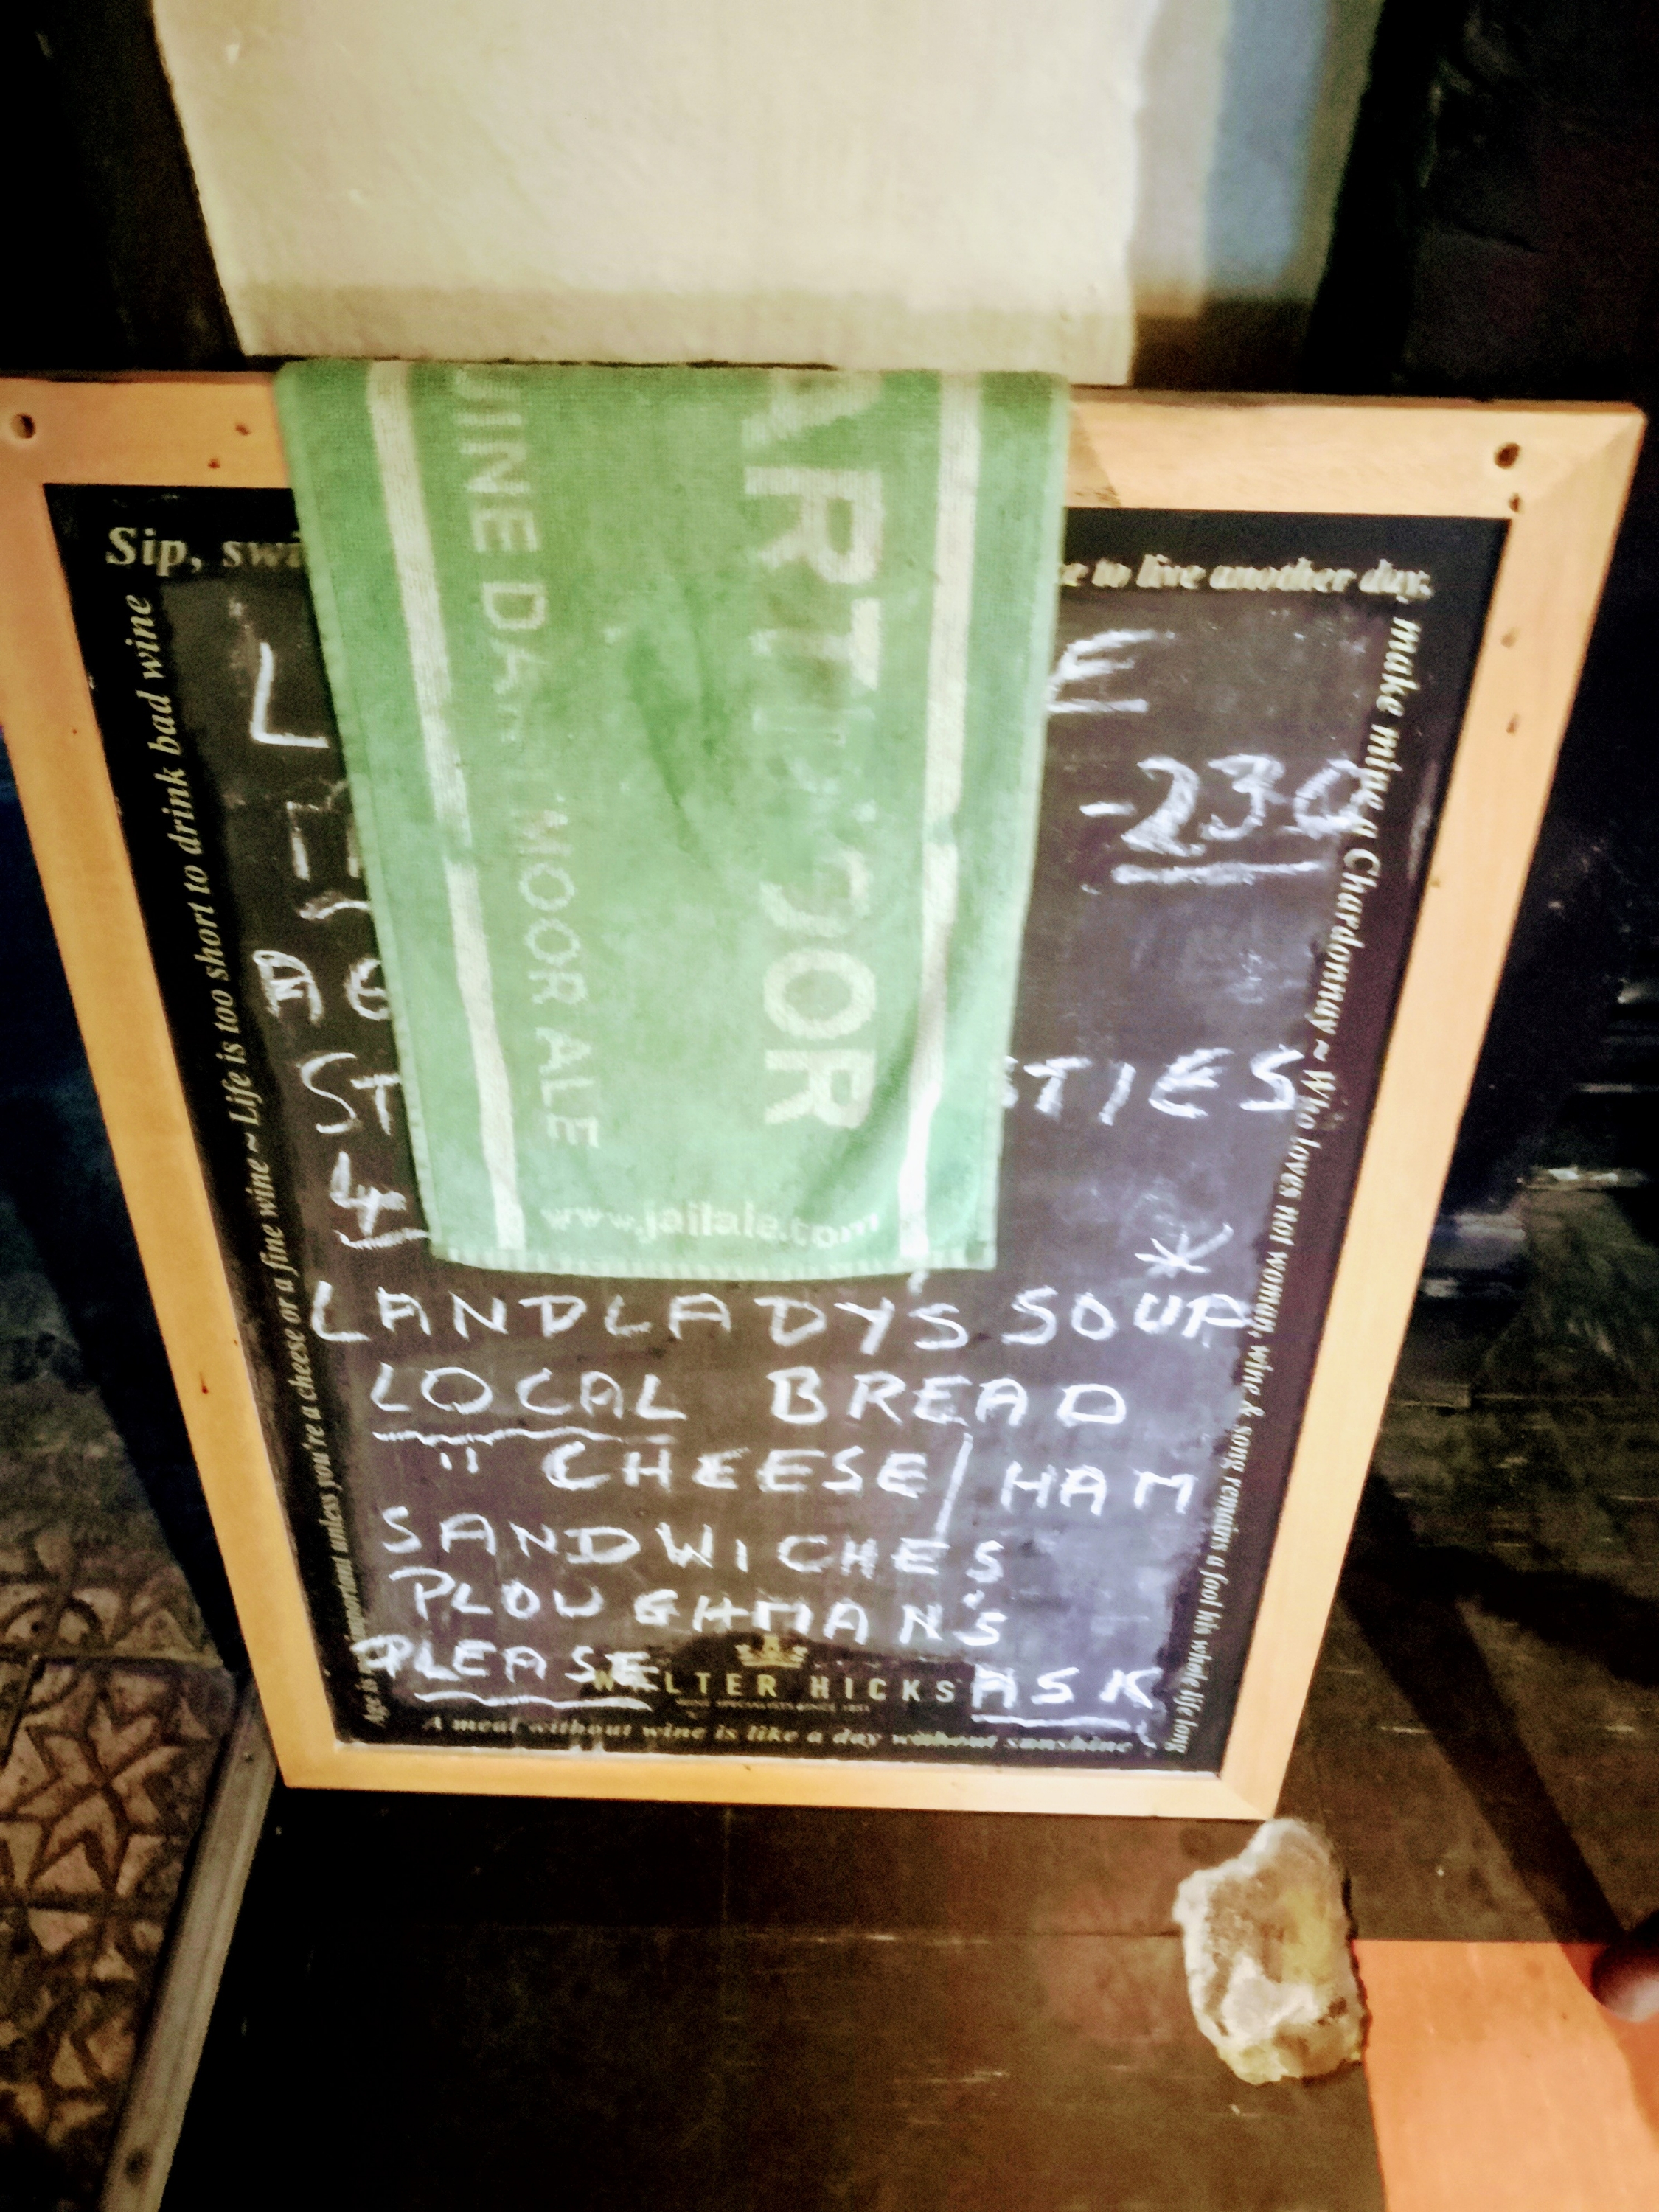 Sip, swi
e to live another day.
make mine a Chardonnay ~ Who loves not woman, wine & song remains a fool his whole life long
Age is important unless you're a cheese or a fine wine ~ Life is too short to drink bad wine
L
E
-230
AG
ST
STIES
4
*
LANDLADY'S SOUP
LOCAL BREAD
" CHEESE/HAM
SANDWICHES
PLOUGHMAN'S
PLEASE ASK
WALTER HICKS
A meal without wine is like a day without sunshine
ART OOR
UINE DARTMOOR ALE
www.jailale.com